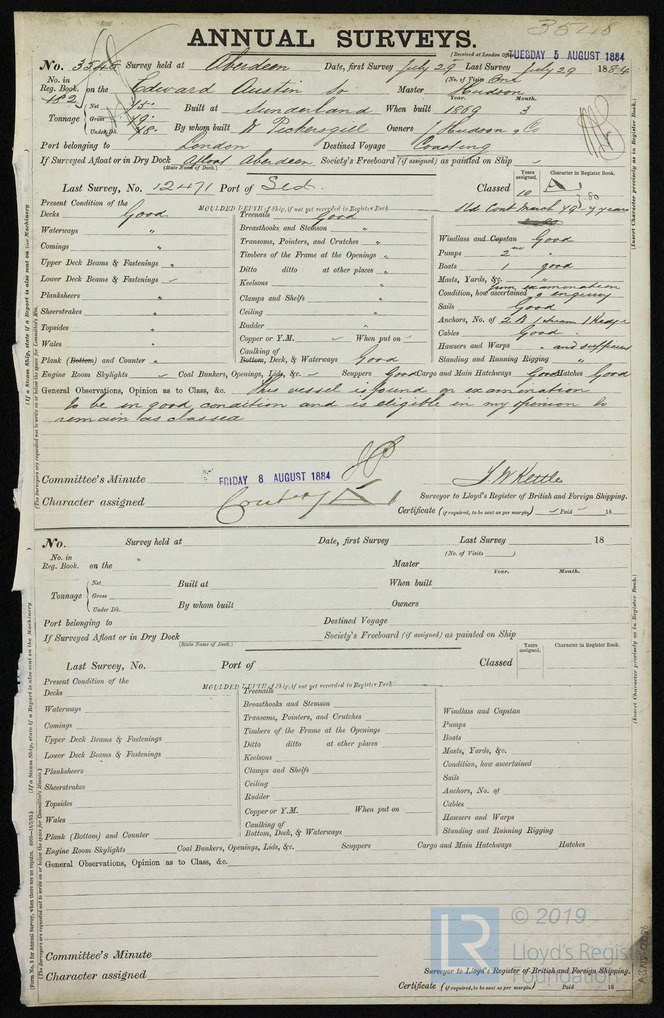 3548
ANNUAL SURVEYS.
(Received at London Office TUESDAY 5 AUGUST 1884
No. 3548 Survey held at Aberdeen Date, first Survey July 29 Last Survey July 29 1884
(No. of Visits One)
No. in Reg. Book. 182 on the Edward Austin Master Hudson
Tonnage Net 45 Built at Sunderland When built Year. 1869 Month. 3
Gross 49
Under Dk. 48 By whom built W Pickersgill Owners J Hudson & Co
Port belonging to London Destined Voyage Coasting
If Surveyed Afloat or in Dry Dock Afloat Aberdeen Society's Freeboard (if assigned) as painted on Ship
(State Name of Dock.)
Last Survey, No. 12471 Port of Sld. Classed Years assigned. 10 Character in Register Book. A 1
Present Condition of the MOULDED DEPTH of Ship, if not yet recorded in Register Book
Sld. Cont March 79 - 7 years
Decks Good
Waterways "
Comings "
Upper Deck Beams & Fastenings "
Lower Deck Beams & Fastenings
Planksheers "
Sheerstrakes "
Topsides "
Wales "
Plank (Bottom) and Counter "
Treenails Good
Breasthooks and Stemson "
Transoms, Pointers, and Crutches "
Timbers of the Frame at the Openings "
Ditto ditto at other places "
Keelsons "
Clamps and Shelfs "
Ceiling "
Rudder "
Copper or Y.M. When put on
Caulking of
Bottom, Deck, & Waterways Good
Windlass and Capstan Good
Pumps 2 "
Boats 1 good
Masts, Yards, &c. "
Condition, how ascertained from examination & enquiry
Sails Good
Anchors, No. of 2 B 1 Stream 1 Kedge
Cables Good
Hawsers and Warps " and sufficient
Standing and Running Rigging "
Engine Room Skylights Coal Bunkers, Openings, Lids, &c. Scuppers Good Cargo and Main Hatchways Good Hatches Good
General Observations, Opinion as to Class, &c. This vessel is found on examination
to be in good condition and is eligible in my opinion to
remain as classed
Committee's Minute FRIDAY 8 AUGUST 1884
J W Kettle
Surveyor to Lloyd's Register of British and Foreign Shipping.
Character assigned
Certificate (if required, to be sent as per margin) Paid 18
No. Survey held at Date, first Survey Last Survey 18
(No. of Visits )
No. in Reg. Book. on the Master
Year. Month.
Tonnage Net Built at When built
Gross
Under Dk. By whom built Owners
Port belonging to Destined Voyage
If Surveyed Afloat or in Dry Dock Society's Freeboard (if assigned) as painted on Ship
(State Name of Dock.)
Last Survey, No. Port of Classed Years assigned. Character in Register Book.
Present Condition of the MOULDED DEPTH of Ship, if not yet recorded in Register Book
Decks
Waterways
Comings
Upper Deck Beams & Fastenings
Lower Deck Beams & Fastenings
Planksheers
Sheerstrakes
Topsides
Wales
Plank (Bottom) and Counter
Treenails
Breasthooks and Stemson
Transoms, Pointers, and Crutches
Timbers of the Frame at the Openings
Ditto ditto at other places
Keelsons
Clamps and Shelfs
Ceiling
Rudder
Copper or Y.M. When put on
Caulking of
Bottom, Deck, & Waterways
Windlass and Capstan
Pumps
Boats
Masts, Yards, &c.
Condition, how ascertained
Sails
Anchors, No. of
Cables
Hawsers and Warps
Standing and Running Rigging
Engine Room Skylights Coal Bunkers, Openings, Lids, &c. Scuppers Cargo and Main Hatchways Hatches
General Observations, Opinion as to Class, &c.
Committee's Minute
Surveyor to Lloyd's Register of British and Foreign Shipping.
Character assigned
Certificate (if required, to be sent as per margin) Paid 18
(Insert Character precisely as in Register Book.)
(Insert Character precisely as in Register Book.)
(If a Steam Ship, state if a Report is also sent on the Machinery
(If a Steam Ship, state if a Report is also sent on the Machinery
(The Surveyors are requested not to write on or below the space for Committee's Minute.)
LR © 2019
Lloyd's Register
Foundation